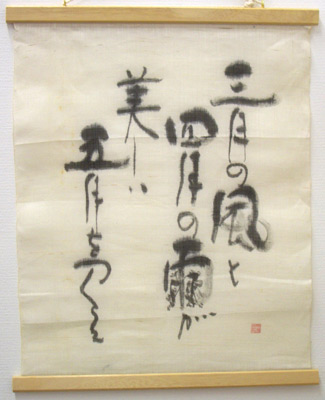 三月の風と
四月の が
美しい
五月をつくる